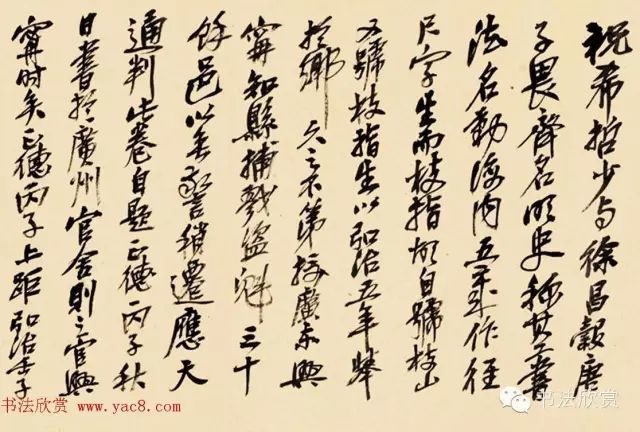 祝希哲少与徐昌穀唐
子畏齊名明史称其工書
法名動海内五年作径
尺字生而枝指故自號枝山
又號枝指生以弘治五年舉
於鄉 久之不第授廣东興
甯知縣捕戮盗魁三十
餘邑以無警稍遷應天
通判此卷自題正德丙子秋
日書於廣州官舍則官興
甯时矣正德丙子上距弘治壬子
书法欣赏 www.yac8.com
书法欣赏